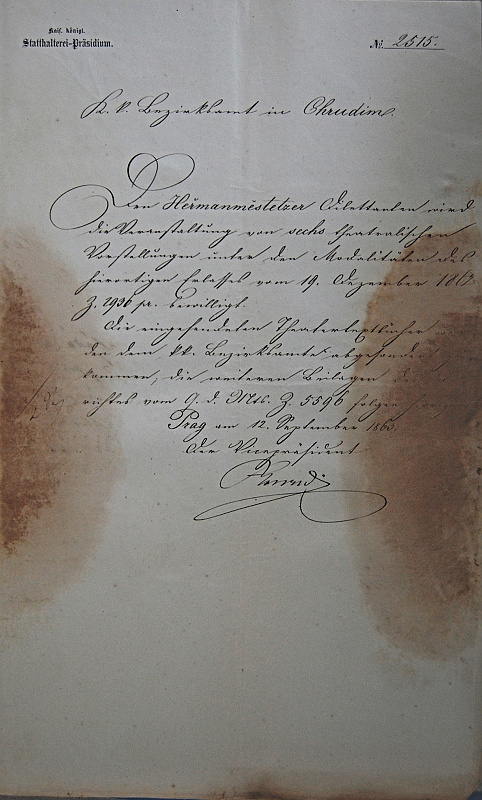 Kais. königl.
Statthalterei-Präsidium.
Nr. 2515.
K. k. Bezirksamt in Chrudim.
Den Heřmanměstetzer Dilettanten wird
die Veranstaltung von sechs theatralischen
Vorstellungen unter den Modalitäten des
hierortigen Erlasses vom 19. Dezember 186
Z. 2936 pr. bewilligt.
Die eingesendeten Theatertextbücher
den dem kk. Bezirksamte abgesondert
kommen, die weiteren Beilagen
richtes vom 9. d. Mts. Z. 5596 folgen
Prag am 12. September 1863.
Der Vicepräsident